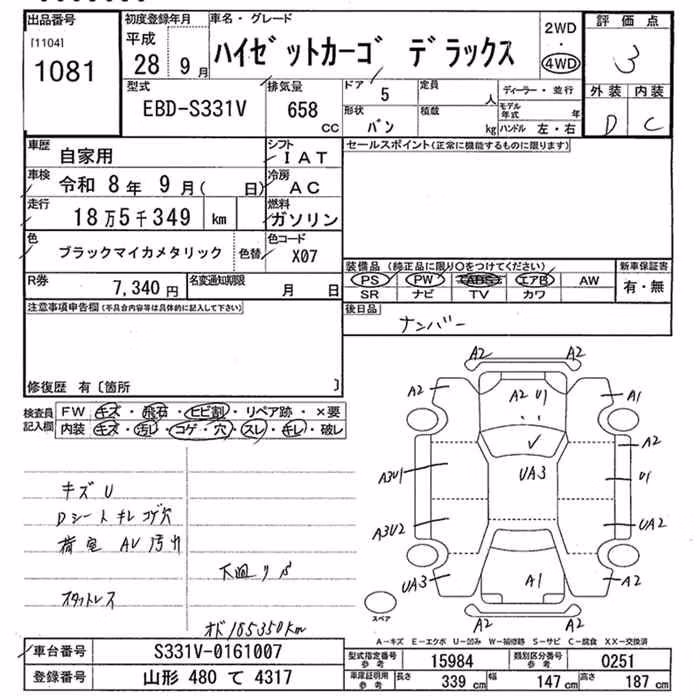 出品番号
[1104]
1081
初度登録年月
平成
28 9 月
車名・グレード
ハイゼットカーゴ デラックス
2WD
・
4WD
評価点
3
外装 内装
D C
型式
EBD-S331V
排気量
658
CC
ドア
5
定員
人
形状
バン
積載
kg
ディーラー・並行
モデル年式 年
ハンドル 左・右
車歴
自家用
シフト
IAT
車検
令和 8年 9月( 日)
冷房
AC
走行
18万5千349 km
燃料
ガソリン
色
ブラックマイカメタリック
色替
色コード
X07
R券
7,340 円
名変通知期限
月 日
セールスポイント(正常に機能するものに限ります)
装備品 (純正品に限り○をつけてください)
PS PW ABS エアB AW
SR ナビ TV カワ
新車保証書
有・無
後日品
ナンバー
注意事項申告欄(不具合内容等は具体的に記入して下さい)
修復歴 有〔箇所 〕
検査員記入欄
FW キズ・飛石・ヒビ割・リペア跡・×要
内装 キズ・汚レ・コゲ・穴・スレ・キレ・破レ
キズU
Dシートキレコゲ穴
荷室 AU汚れ
下皿リペ
スタットレス
オド185350km
A2 A2
A2 A2 U1 A1
A2
A3U1 UA3 U1
A3U2 UA2
UA3 A1 A2
A2 A2
スペア
A－キズ E－エクボ U－凹み W－補修跡 S－サビ C－腐食 XX－交換済
車台番号
S331V-0161007
登録番号
山形 480 て 4317
型式指定番号 参考
15984
類別区分番号 参考
0251
車庫証明用 参考
長さ 339 cm
幅 147 cm
高さ 187 cm